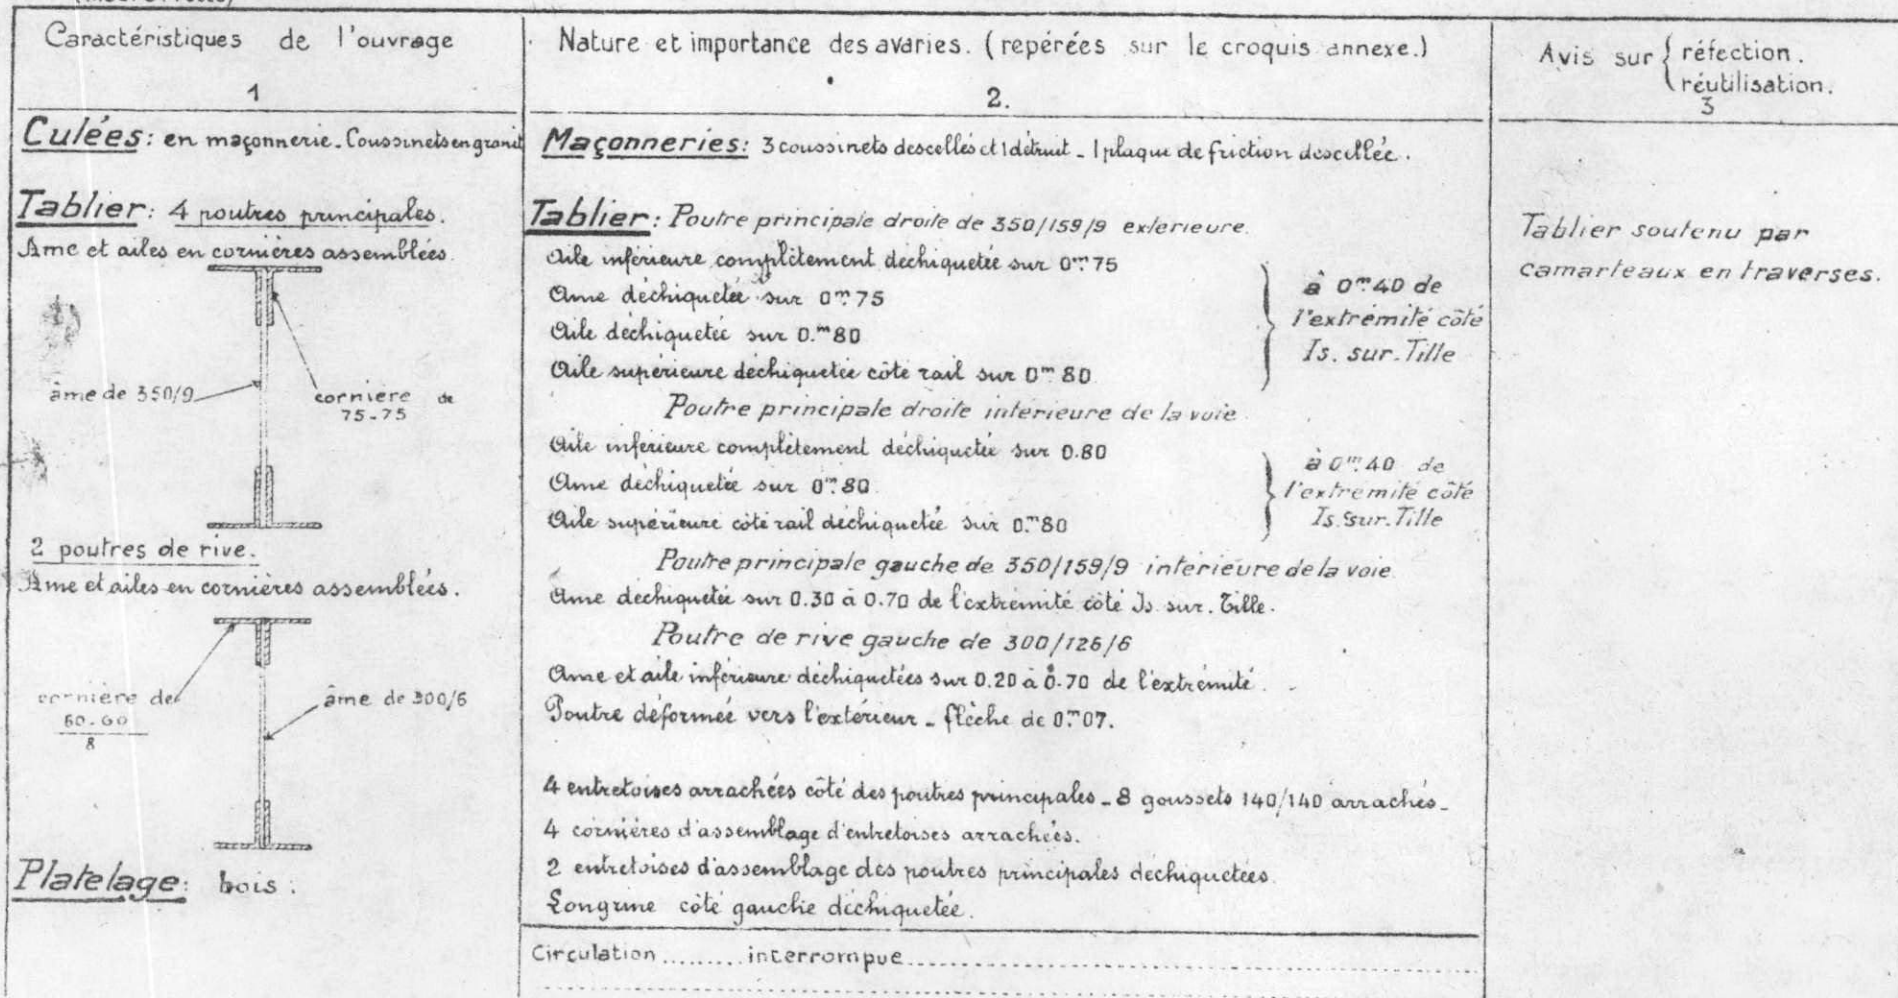 Caractéristiques de l'ouvrage
1
Culées: en maçonnerie. Coussinets en granit
Tablier: 4 poutres principales.
Ame et ailes en cornières assemblées.
âme de 350/9
cornière de
75-75
2 poutres de rive.
Ame et ailes en cornières assemblées.
cornière de
60-60
8
âme de 300/6
Platelage: bois.
Nature et importance des avaries. (repérées sur le croquis annexe.)
2.
Maçonneries: 3 coussinets descellés et 1 détruit - 1 plaque de friction descellée.
Tablier: Poutre principale droite de 350/159/9 extérieure.
Aile inférieure complètement déchiquetée sur 0m75
Ame déchiquetée sur 0m75
Aile déchiquetée sur 0.m80
Aile supérieure déchiquetée côté rail sur 0m80
à 0m40 de
l'extrémité côté
Is. sur. Tille
Poutre principale droite intérieure de la voie.
Aile inférieure complètement déchiquetée sur 0.80
Ame déchiquetée sur 0m80
Aile supérieure côté rail déchiquetée sur 0.m80
à 0m40 de
l'extrémité côté
Is. sur. Tille
Poutre principale gauche de 350/159/9 intérieure de la voie
Ame déchiquetée sur 0.30 à 0.70 de l'extrémité côté Is. sur. Tille.
Poutre de rive gauche de 300/126/6
Ame et aile inférieure déchiquetées sur 0.20 à 0.70 de l'extrémité.
Poutre déformée vers l'extérieur - flèche de 0m07.
4 entretoises arrachées côté des poutres principales - 8 goussets 140/140 arrachés -
4 cornières d'assemblage d'entretoises arrachées.
2 entretoises d'assemblage des poutres principales déchiquetées.
Longrine côté gauche déchiquetée.
Circulation ......... interrompue
Avis sur { réfection.
réutilisation.
3
Tablier soutenu par
camarteaux en traverses.